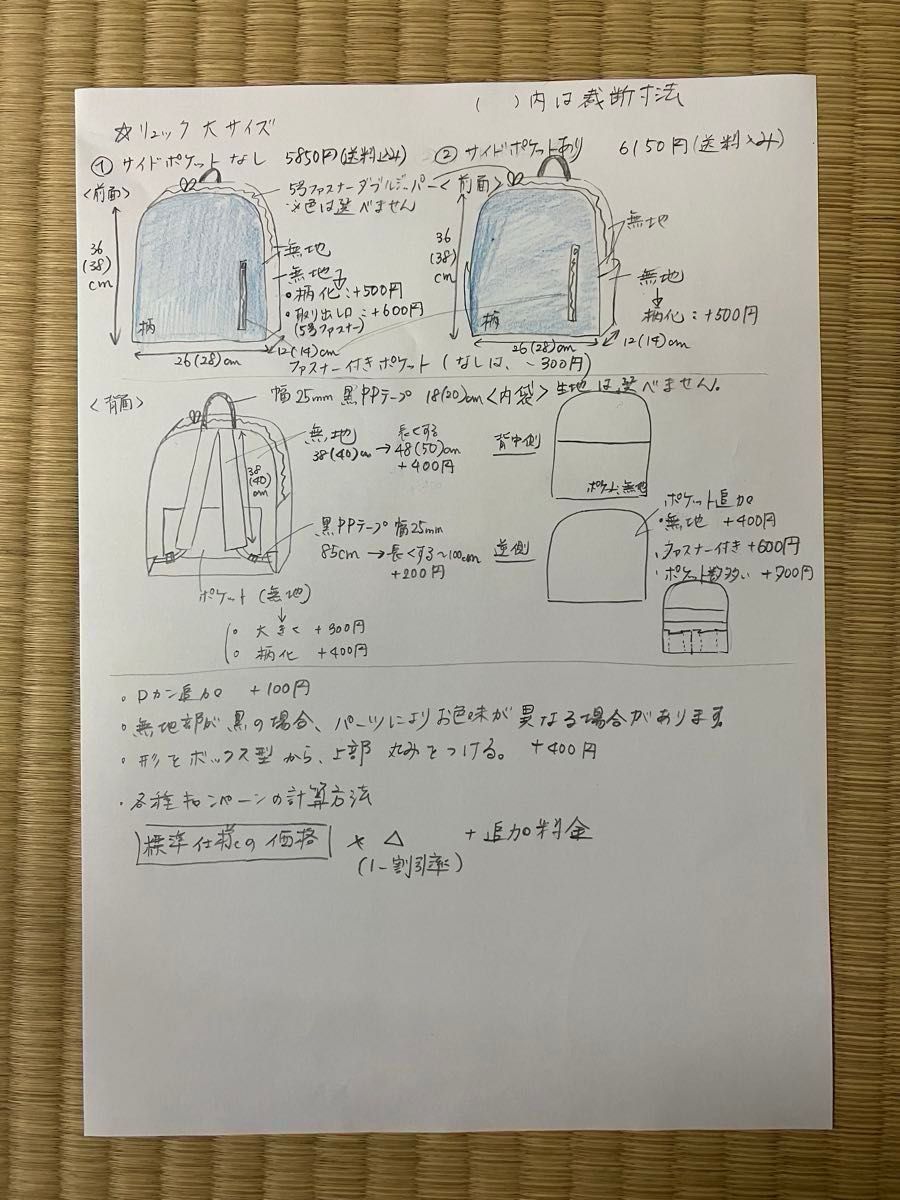 ( )内は裁断寸法
☆リュック大サイズ
① サイドポケットなし 5850円(送料込み)
② サイドポケットあり 6150円(送料込み)
<前面>
5号ファスナーダブルジッパー
※色は選べません
36
(38)
cm
無地
無地
・柄化:+500円
・取り出し口:+600円
(5号ファスナー)
柄
26(28)cm
12(14)cm
<前面>
36
(38)
cm
無地
無地
柄化:+500円
柄
26(28)cm
12(14)cm
ファスナー付きポケット(なしは、-300円)
<背面>
幅25mm 黒PPテープ 18(20)cm
無地
38(40)cm → 長くする
48(50)cm
+400円
38
(40)
cm
黒PPテープ 幅25mm
85cm → 長くする~100cm
+200円
ポケット(無地)
○ 大きく +300円
○ 柄化 +400円
<内袋> 生地は選べません。
背中側
ポケット無地
逆側
ポケット追加
・無地 +400円
・ファスナー付き+600円
・ポケット数多い +700円
。Dカン追加 +100円
。無地部が黒の場合、パーツによりお色味が異なる場合があります
・形をボックス型から、上部 丸みをつける。 +400円
・各種キャンペーンの計算方法
標準仕様の価格 × △ + 追加料金
(1-割引率)